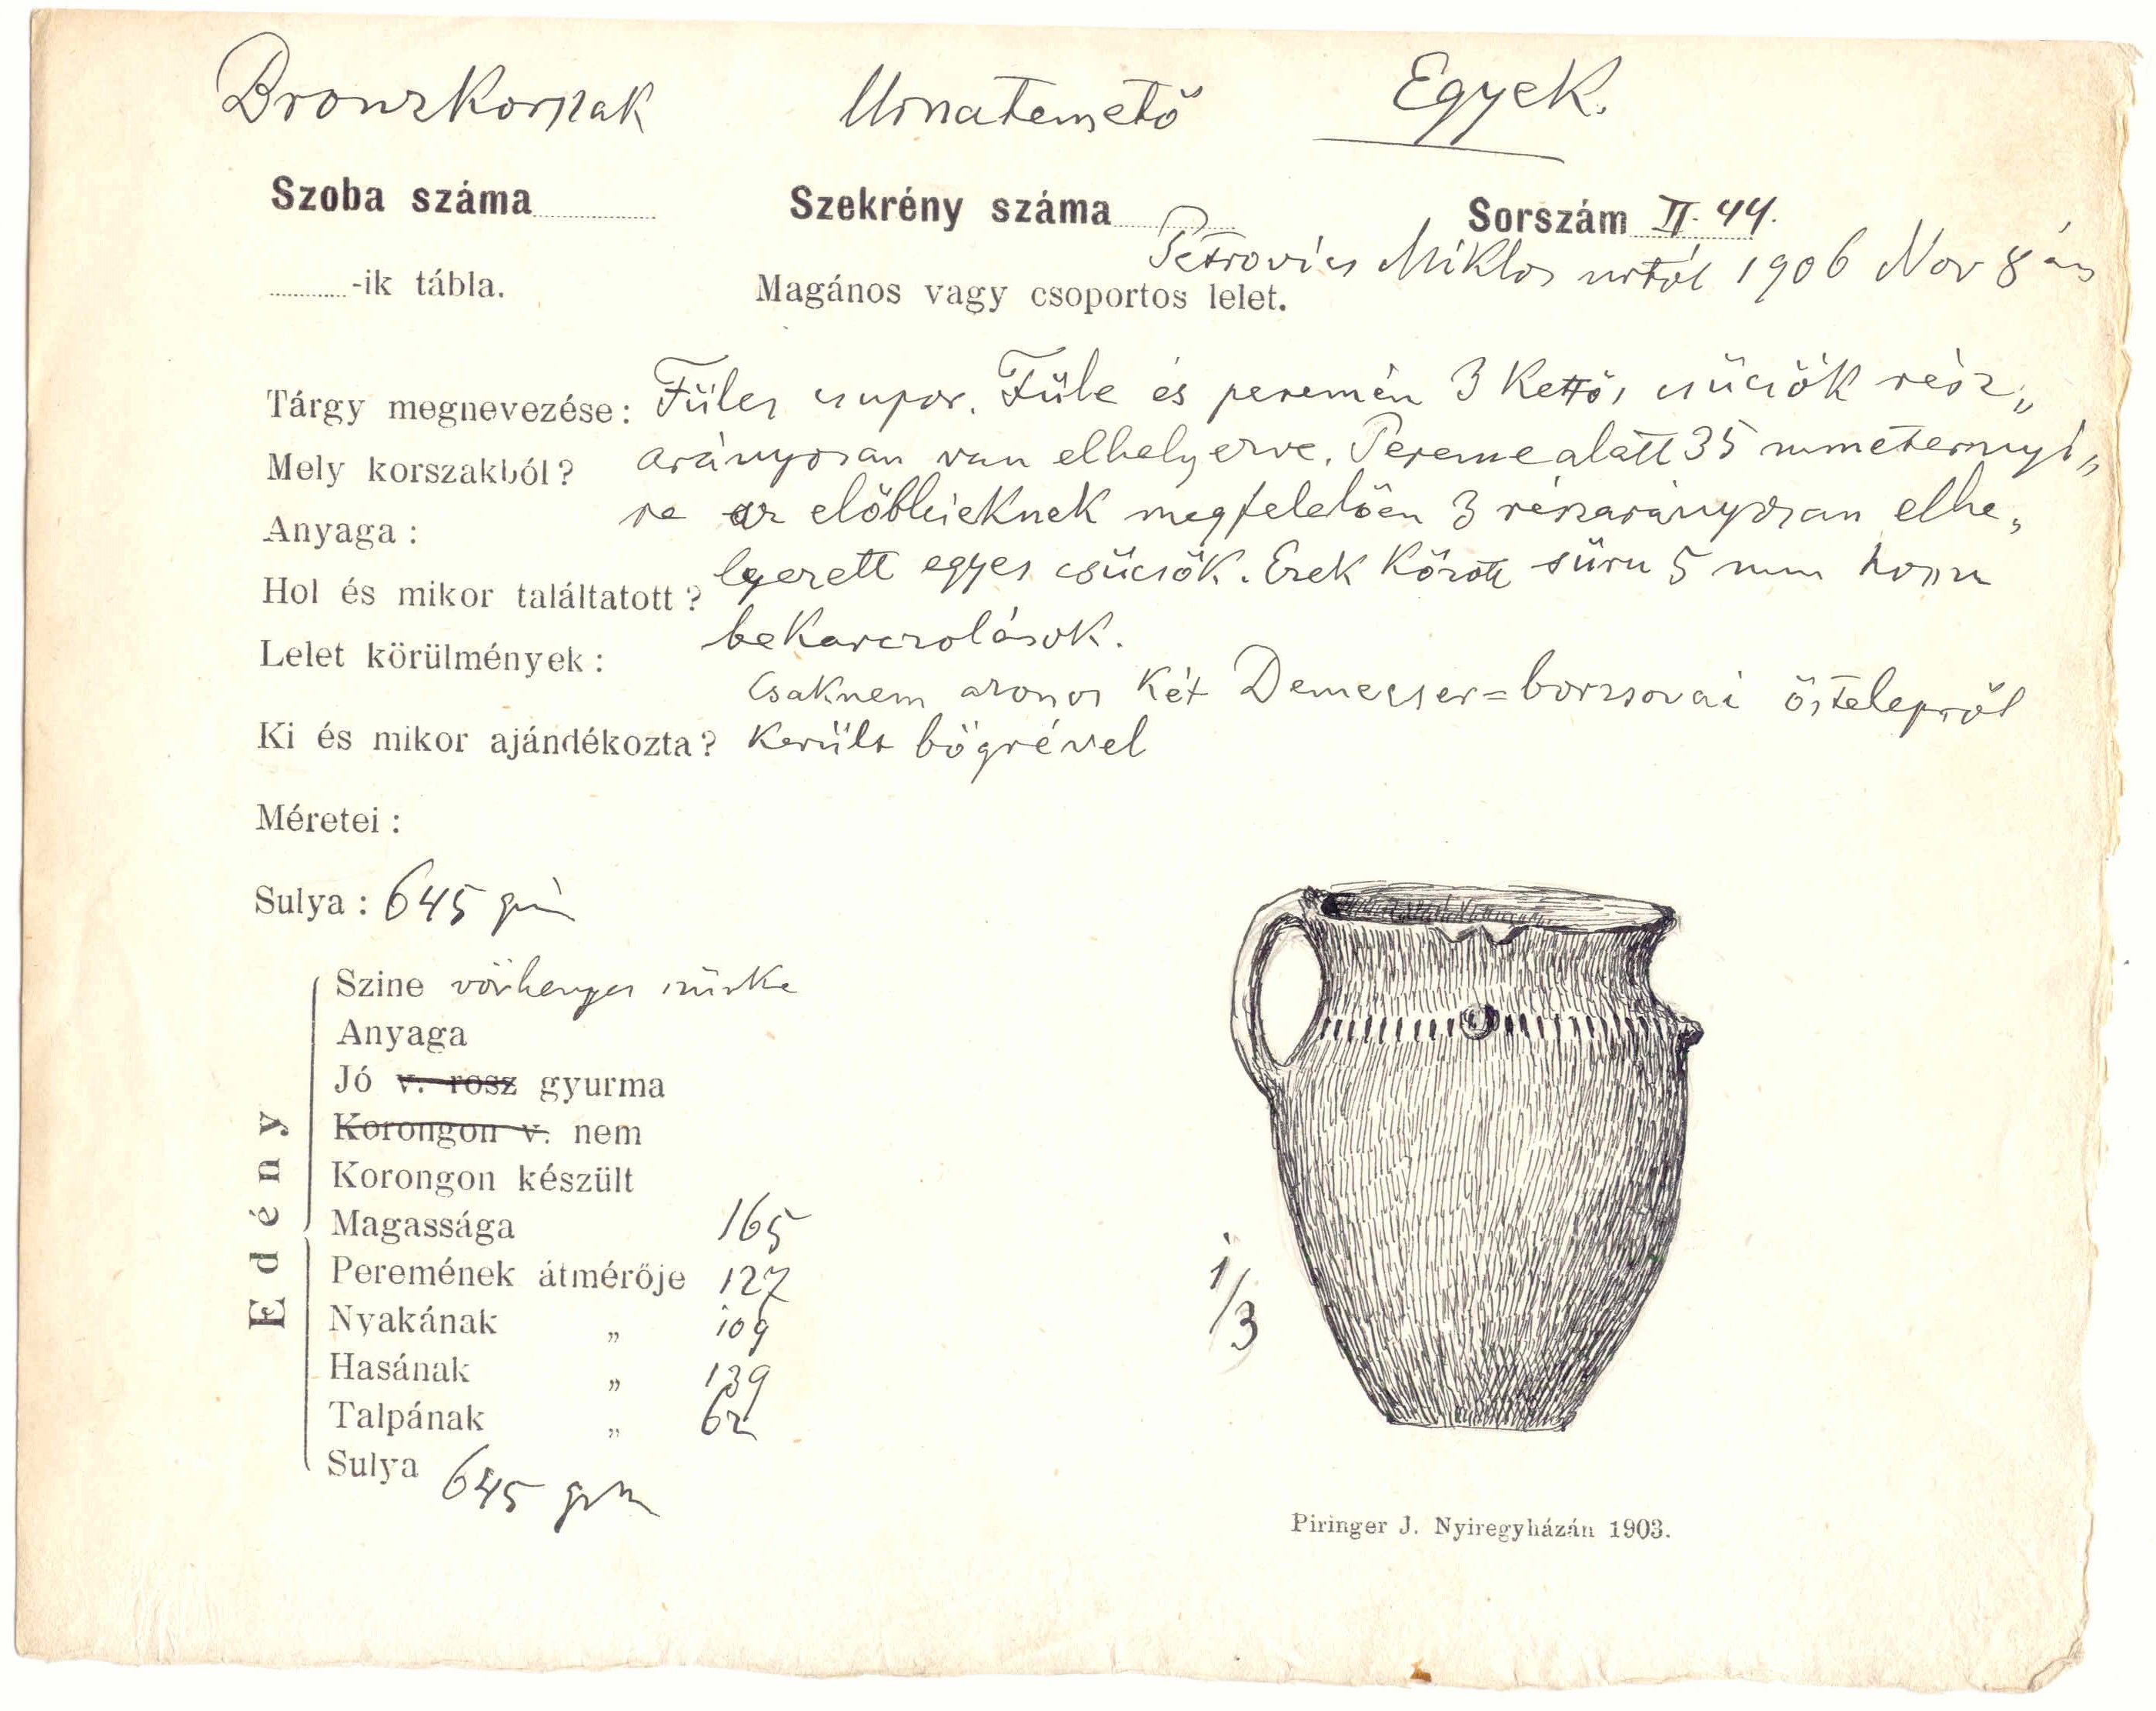 Bronzkorszak Urnatemető Egyek.
Szoba száma Szekrény száma Sorszám II. 44.
Petrovics Miklos urtól 1906 Nov 8 án
-ik tábla. Magános vagy csoportos lelet.
Tárgy megnevezése: Füles csupor. Füle és peremén 3 Kettős csücsök rész„
Mely korszakból? arányosan van elhelyezve. Pereme alatt 35 mmeternyi„
Anyaga: re az előbbieknek megfelelően 3 részarányosan elhe„
Hol és mikor találtatott? lyezett egyes csücsök. Ezek között sürü 5 mm hosszu
Lelet körülmények: bekarczolások.
Csaknem azonos Két Demecser=borzsovai őstelepről
Ki és mikor ajándékozta? Került bögrével
Méretei:
Sulya: 645 grm
Edény
Szine vörhenyes szürke
Anyaga
Jó v. rosz gyurma
Korongon v. nem
Korongon készült
Magassága 165
Peremének átmérője 127
Nyakának „ 109
Hasának „ 139
Talpának „ 62
Sulya 645 grm
1/3
Piringer J. Nyiregyházán 1903.